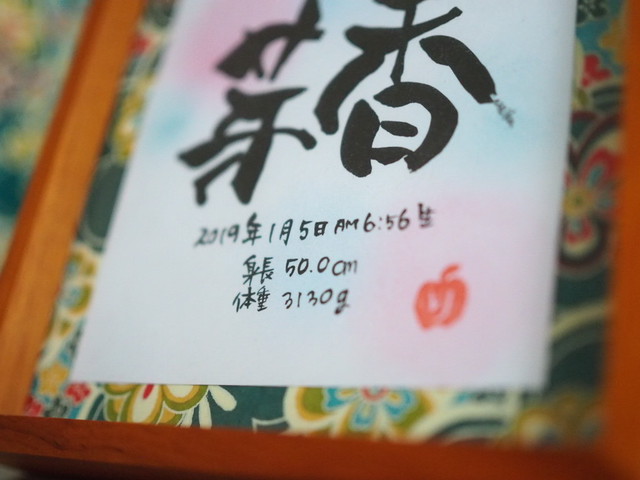 芽香
2019年1月5日AM6:56生
身長 50.0cm
体重 3130g
め